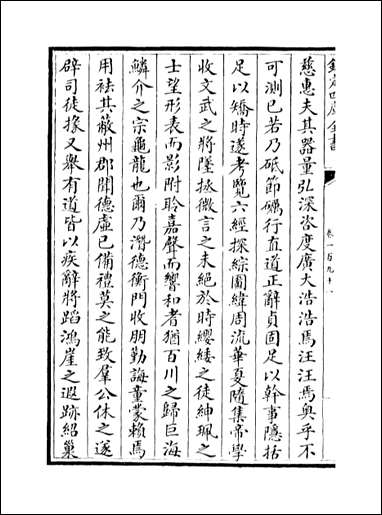 欽定四庫全書
卷一百九十一
慈惠夫其器量弘深咨度廣大浩浩焉汪汪焉奥乎不
可測已若乃砥節礪行直道正辭貞固足以幹事隱括
足以矯時遂考覽六經探綜圖緯周流華夏隨集帝學
收文武之將墜拯微言之未絶於時纓緌之徒紳珮之
士望形表而影附聆嘉聲而響和者猶百川之歸巨海
鱗介之宗龜龍也爾乃潛德衡門收朋勤誨童蒙賴焉
用祛其蔽州郡聞德虚已備禮莫之能致羣公休之遂
辟司徒掾又舉有道皆以疾辭將蹈鴻崖之遐跡紹巢